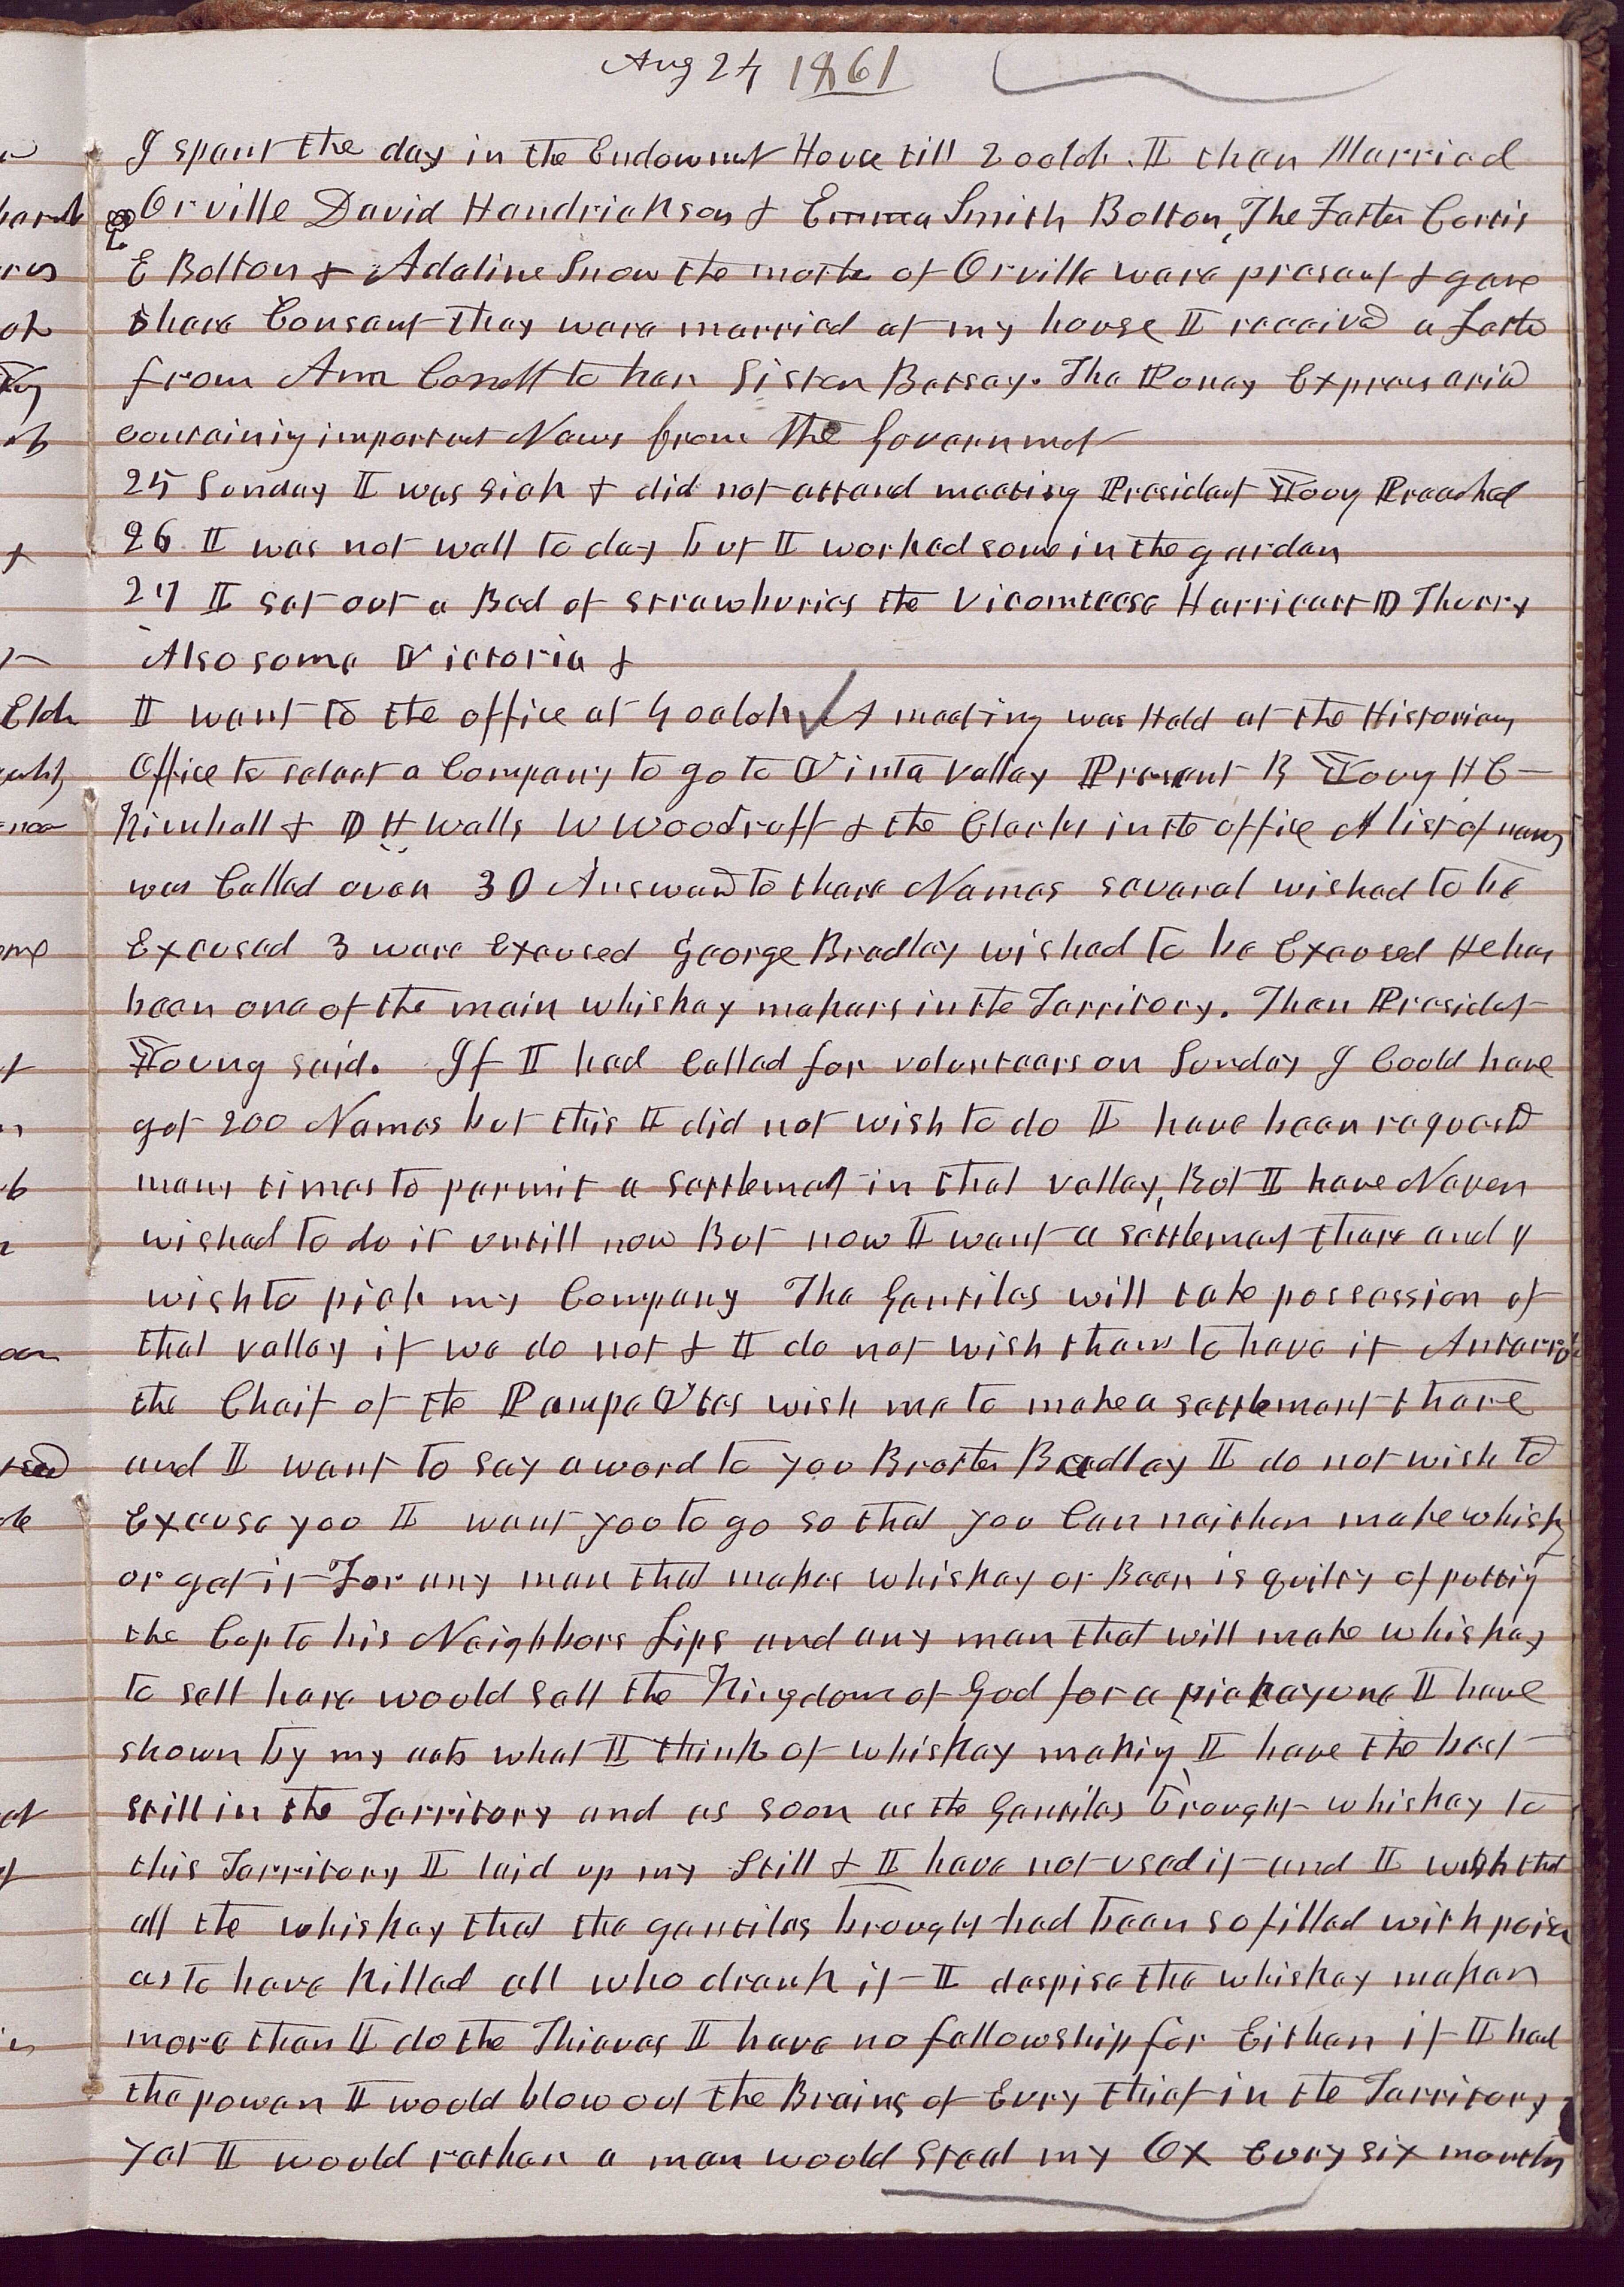 Aug 24 1861
I spent the day in the Endowmet House till 2 oclok. I then Married
Orville David Hendrickson & Emma Smith Bolton, The Fathe Curtis
E Bolton & Adaline Snow the mothe of Orville ware present & gave
thare Consent they ware married at my house I received a Lette
from Ann to her Sister Betsey. The Poney Express arivd
containing important News from the Governmet
25 Sunday I was sick & did not attend meeting President Young Preached
26 I was not well to day but I worked some in the garden
27 I set out a Bed of strawburies the Vicomtesse Harricart D Thurry
Also some Victoria &
I went to the office at 4 oclok A meeting was Held at the Historians
Office to select a Company to go to Uinta valley Present B Young H C
Kimball & D H Wells W Woodruff & the Clerks in the office A list of names
was Called over 30 Answard to thare Names several wished to be
Excused 3 ware Excused George Bradley wished to be Excused He has
been one of the main whiskey makers in the Territory. Then Presidet
Young said. If I had Called for volunteers on Sunday I Could have
got 200 Names but this I did not wish to do I have been requestd
many times to permit a settlemet in that valley, But I have Never
wished to do it untill now But now I want a settlement thare and I
wish to pick my Company The Gentiles will take possession of
that valley if we do not & I do not wish them to have it Antarro
the Cheif of the Pampa Utes wish me to make a settlement thare
and I want to say a word to you Brother Bradley I do not wish to
Excuse you I want you to go so that you Can neither make whisky
or get it For any man that makes whiskey or Beer is guilty of putting
the Cup to his Neighbors Lips and any man that will make whiskey
to sell here would sell the Kingdom of God for a picayune I have
shown by my acts what I think of whiskey making I have the best
still in the Territory and as soon as the Gentiles brought whiskey to
this Territory I laid up my Still & I have not used it and I wish that
all the whiskey that the gentiles brought had been so filled with poisen
as to have killed all who drank it I despise the whiskey maker
more than I do the Thieves I have no fellowship for Either if I had
the power I would blow out the Brains of Evry thief in the Territory
yet I would rather a man would steal my Ox Evry six months